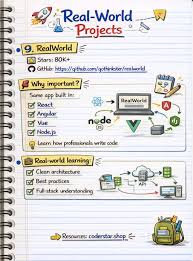 Real-World
Projects
9. RealWorld
Stars: 80K+
GitHub: https://github.com/gothinkster/realworld
Why important?
Same app built in:
React
Angular
Vue
Node.js
RealWorld
node
Learn how professionals write code
Real-world learning:
Clean architecture
Best practices
Full-stack understanding
API
Resources: coderstar.shop